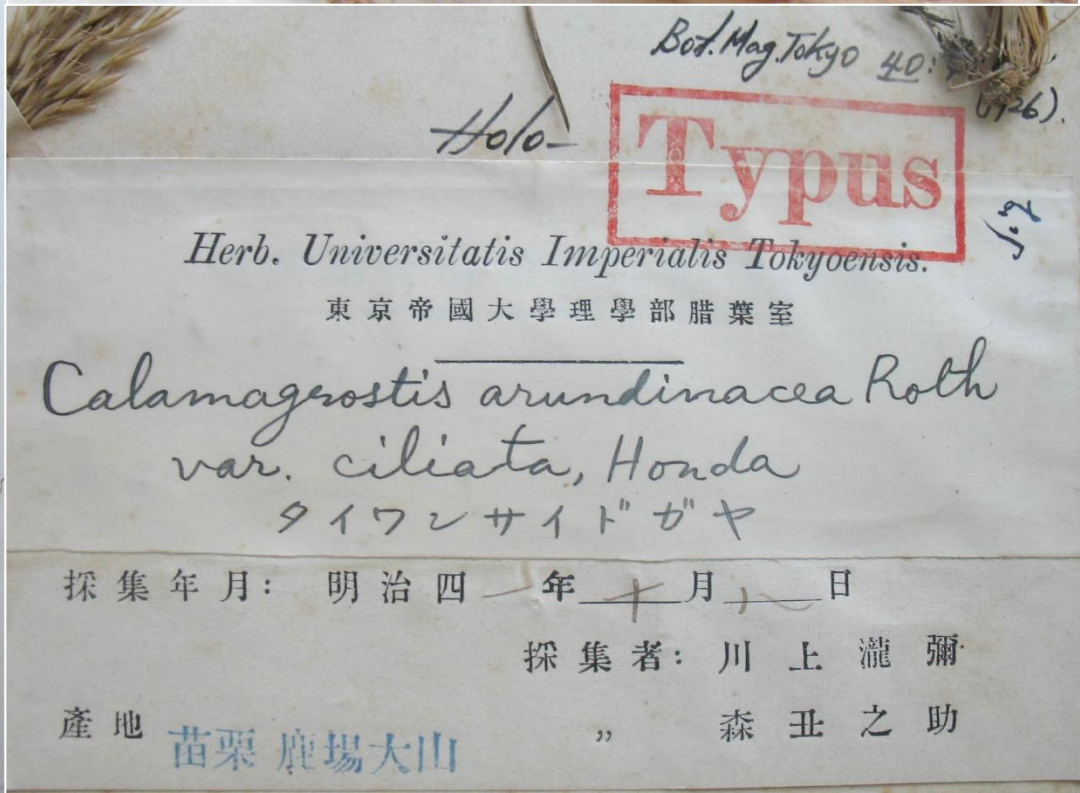 Bot. Mag. Tokyo 40:
(1926).
Holo-
Typus
Herb. Universitatis Imperialis Tokyoensis.
東京帝國大學理學部腊葉室
Calamagrostis arundinacea Roth
var. ciliata, Honda
タイワンサイドガヤ
採集年月: 明治四一年十月八日
採集者: 川上瀧彌
產地 苗栗 鹿場大山 〃 森丑之助